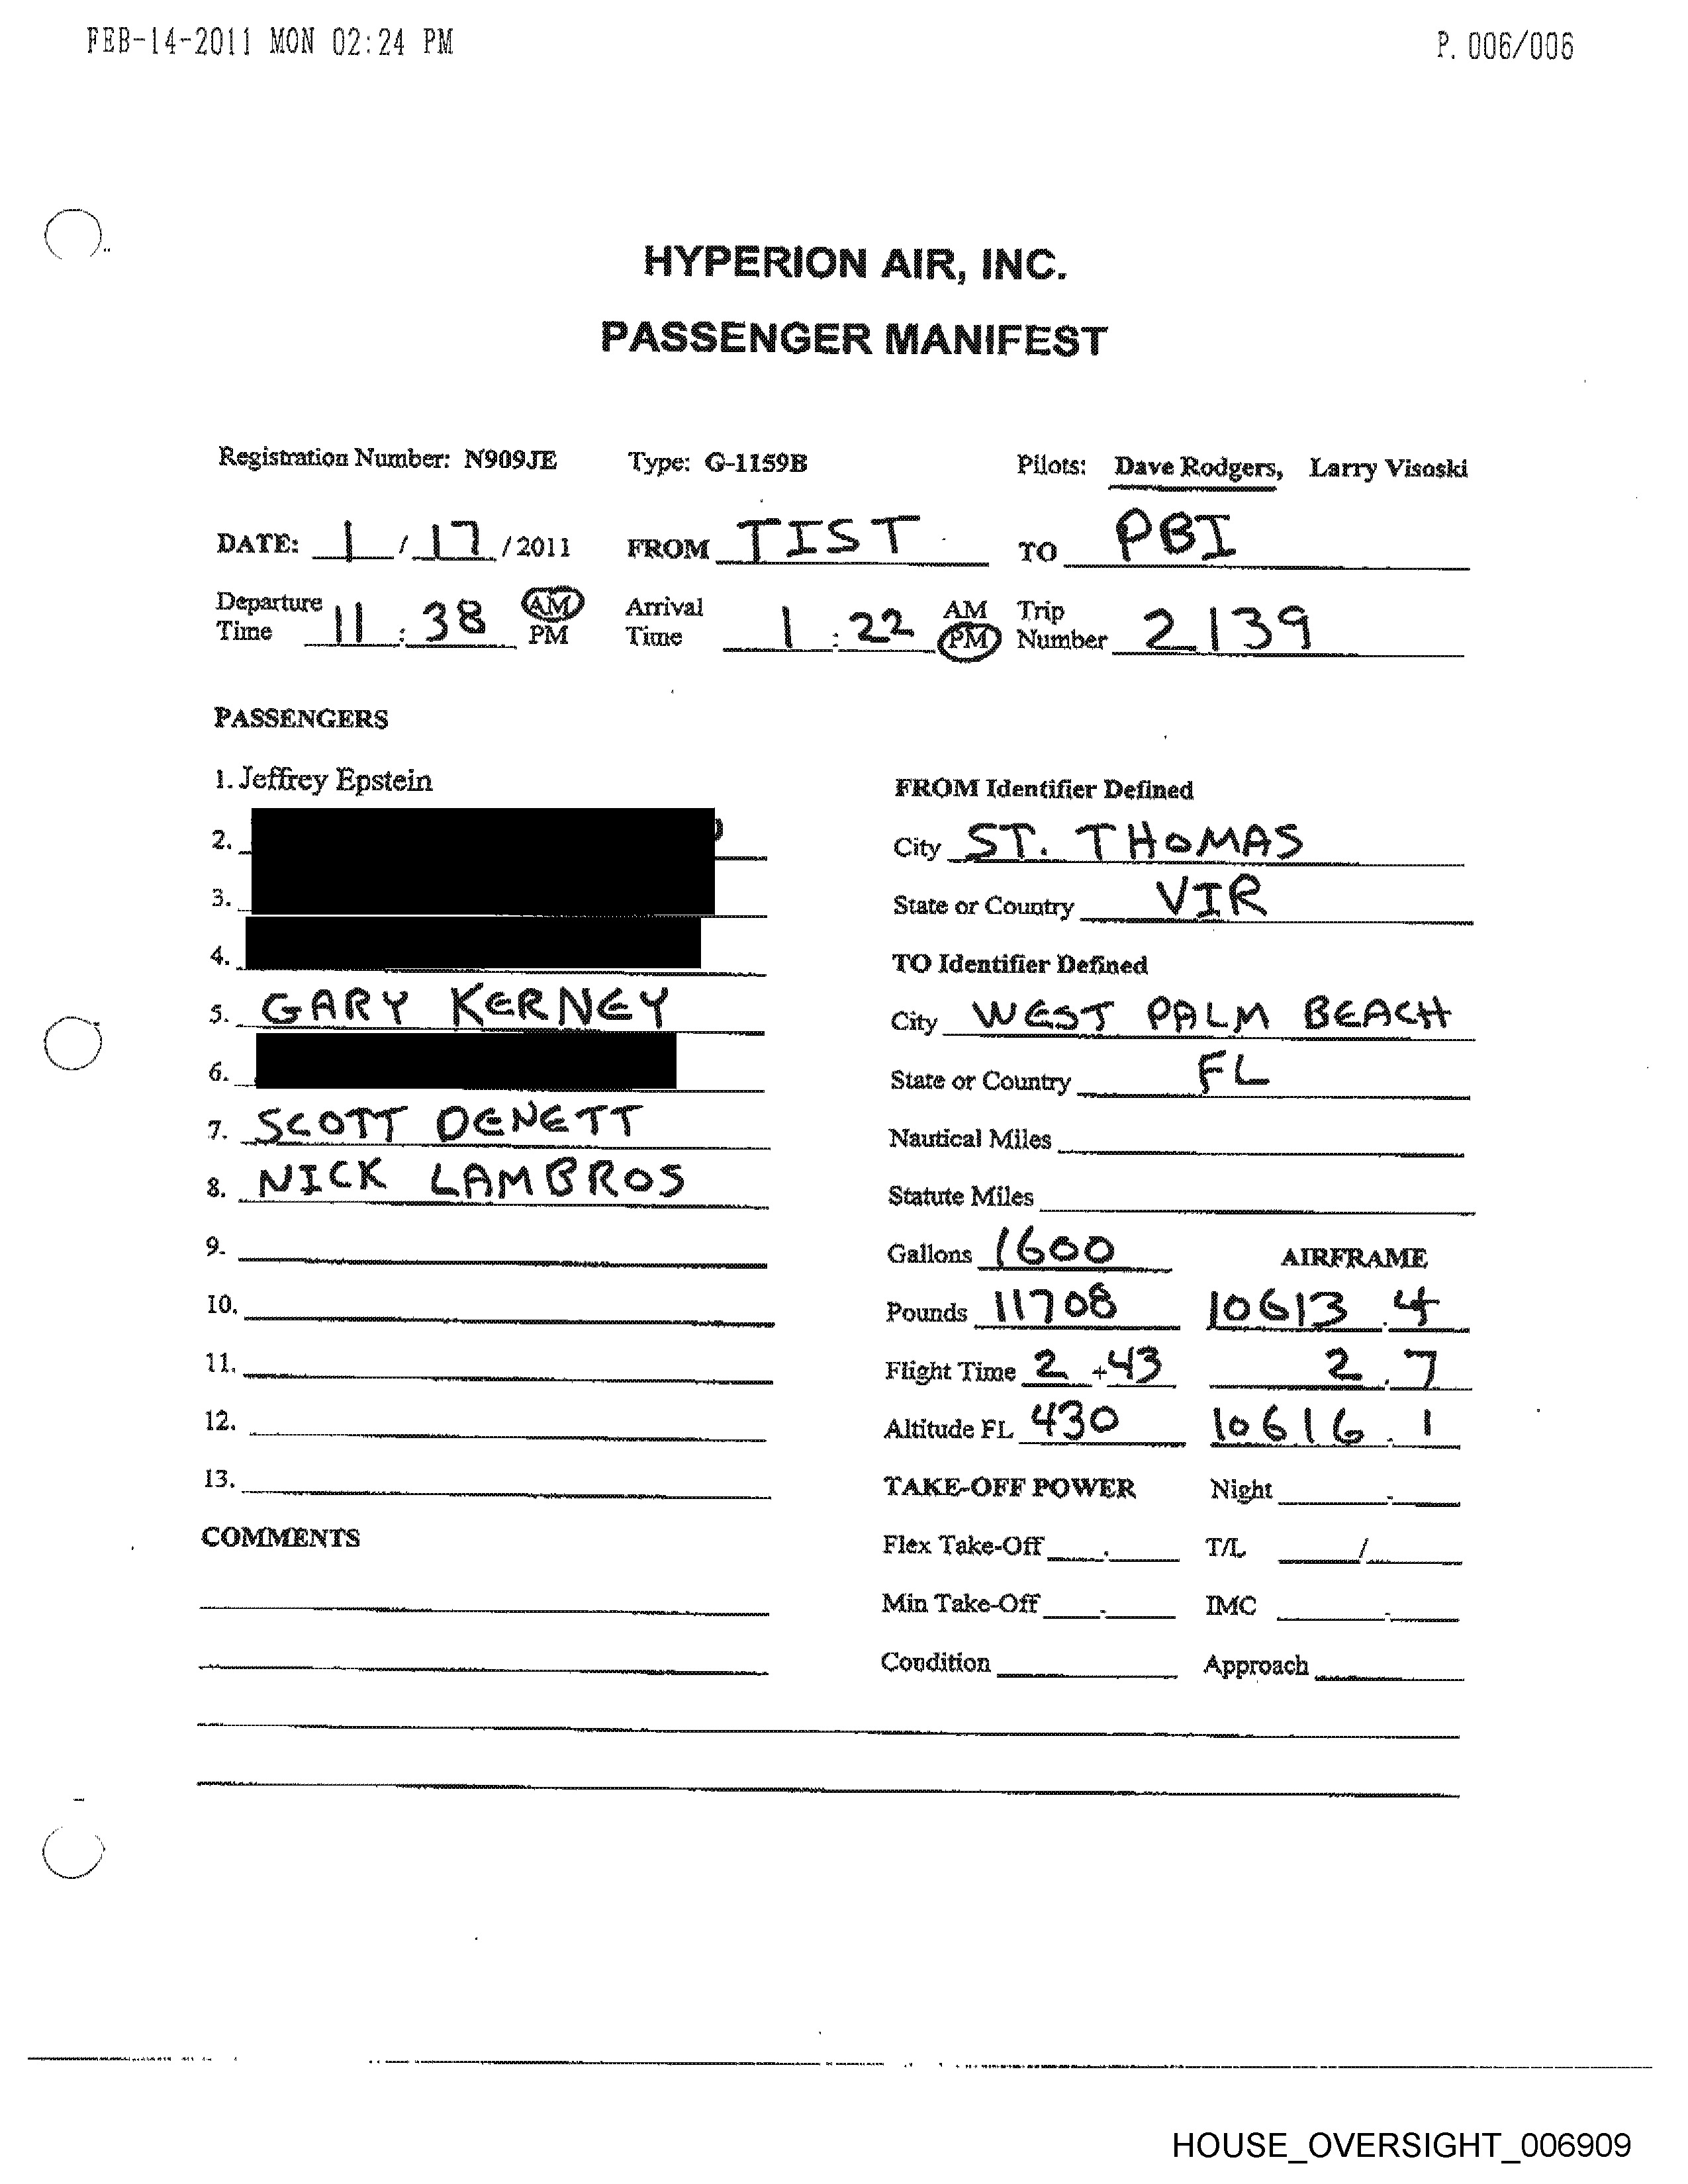 FEB-14-2011 MON 02:24 PM P. 006/006
HYPERION AIR, INC.
PASSENGER MANIFEST
Registration Number: N909JE Type: G-1159B Pilots: Dave Rodgers, Larry Visoski
DATE: 1 / 17 / 2011 FROM TIST TO PBI
Departure Time 11 : 38 AM PM Arrival Time 1 : 22 AM PM Trip Number 2139
PASSENGERS
1. Jeffrey Epstein
FROM Identifier Defined
2.
City ST. THOMAS
3.
State or Country VIR
4.
TO Identifier Defined
5. GARY KERNEY
City WEST PALM BEACH
6.
State or Country FL
7. SCOTT DENETT
Nautical Miles
8. NICK LAMBROS
Statute Miles
9.
Gallons 1600 AIRFRAME
10.
Pounds 11708 10613.4
11.
Flight Time 2 +43 2.7
12.
Altitude FL 430 10616.1
13.
TAKE-OFF POWER Night .
COMMENTS
Flex Take-Off . T/L /
Min Take-Off . IMC .
Condition Approach
HOUSE_OVERSIGHT_006909